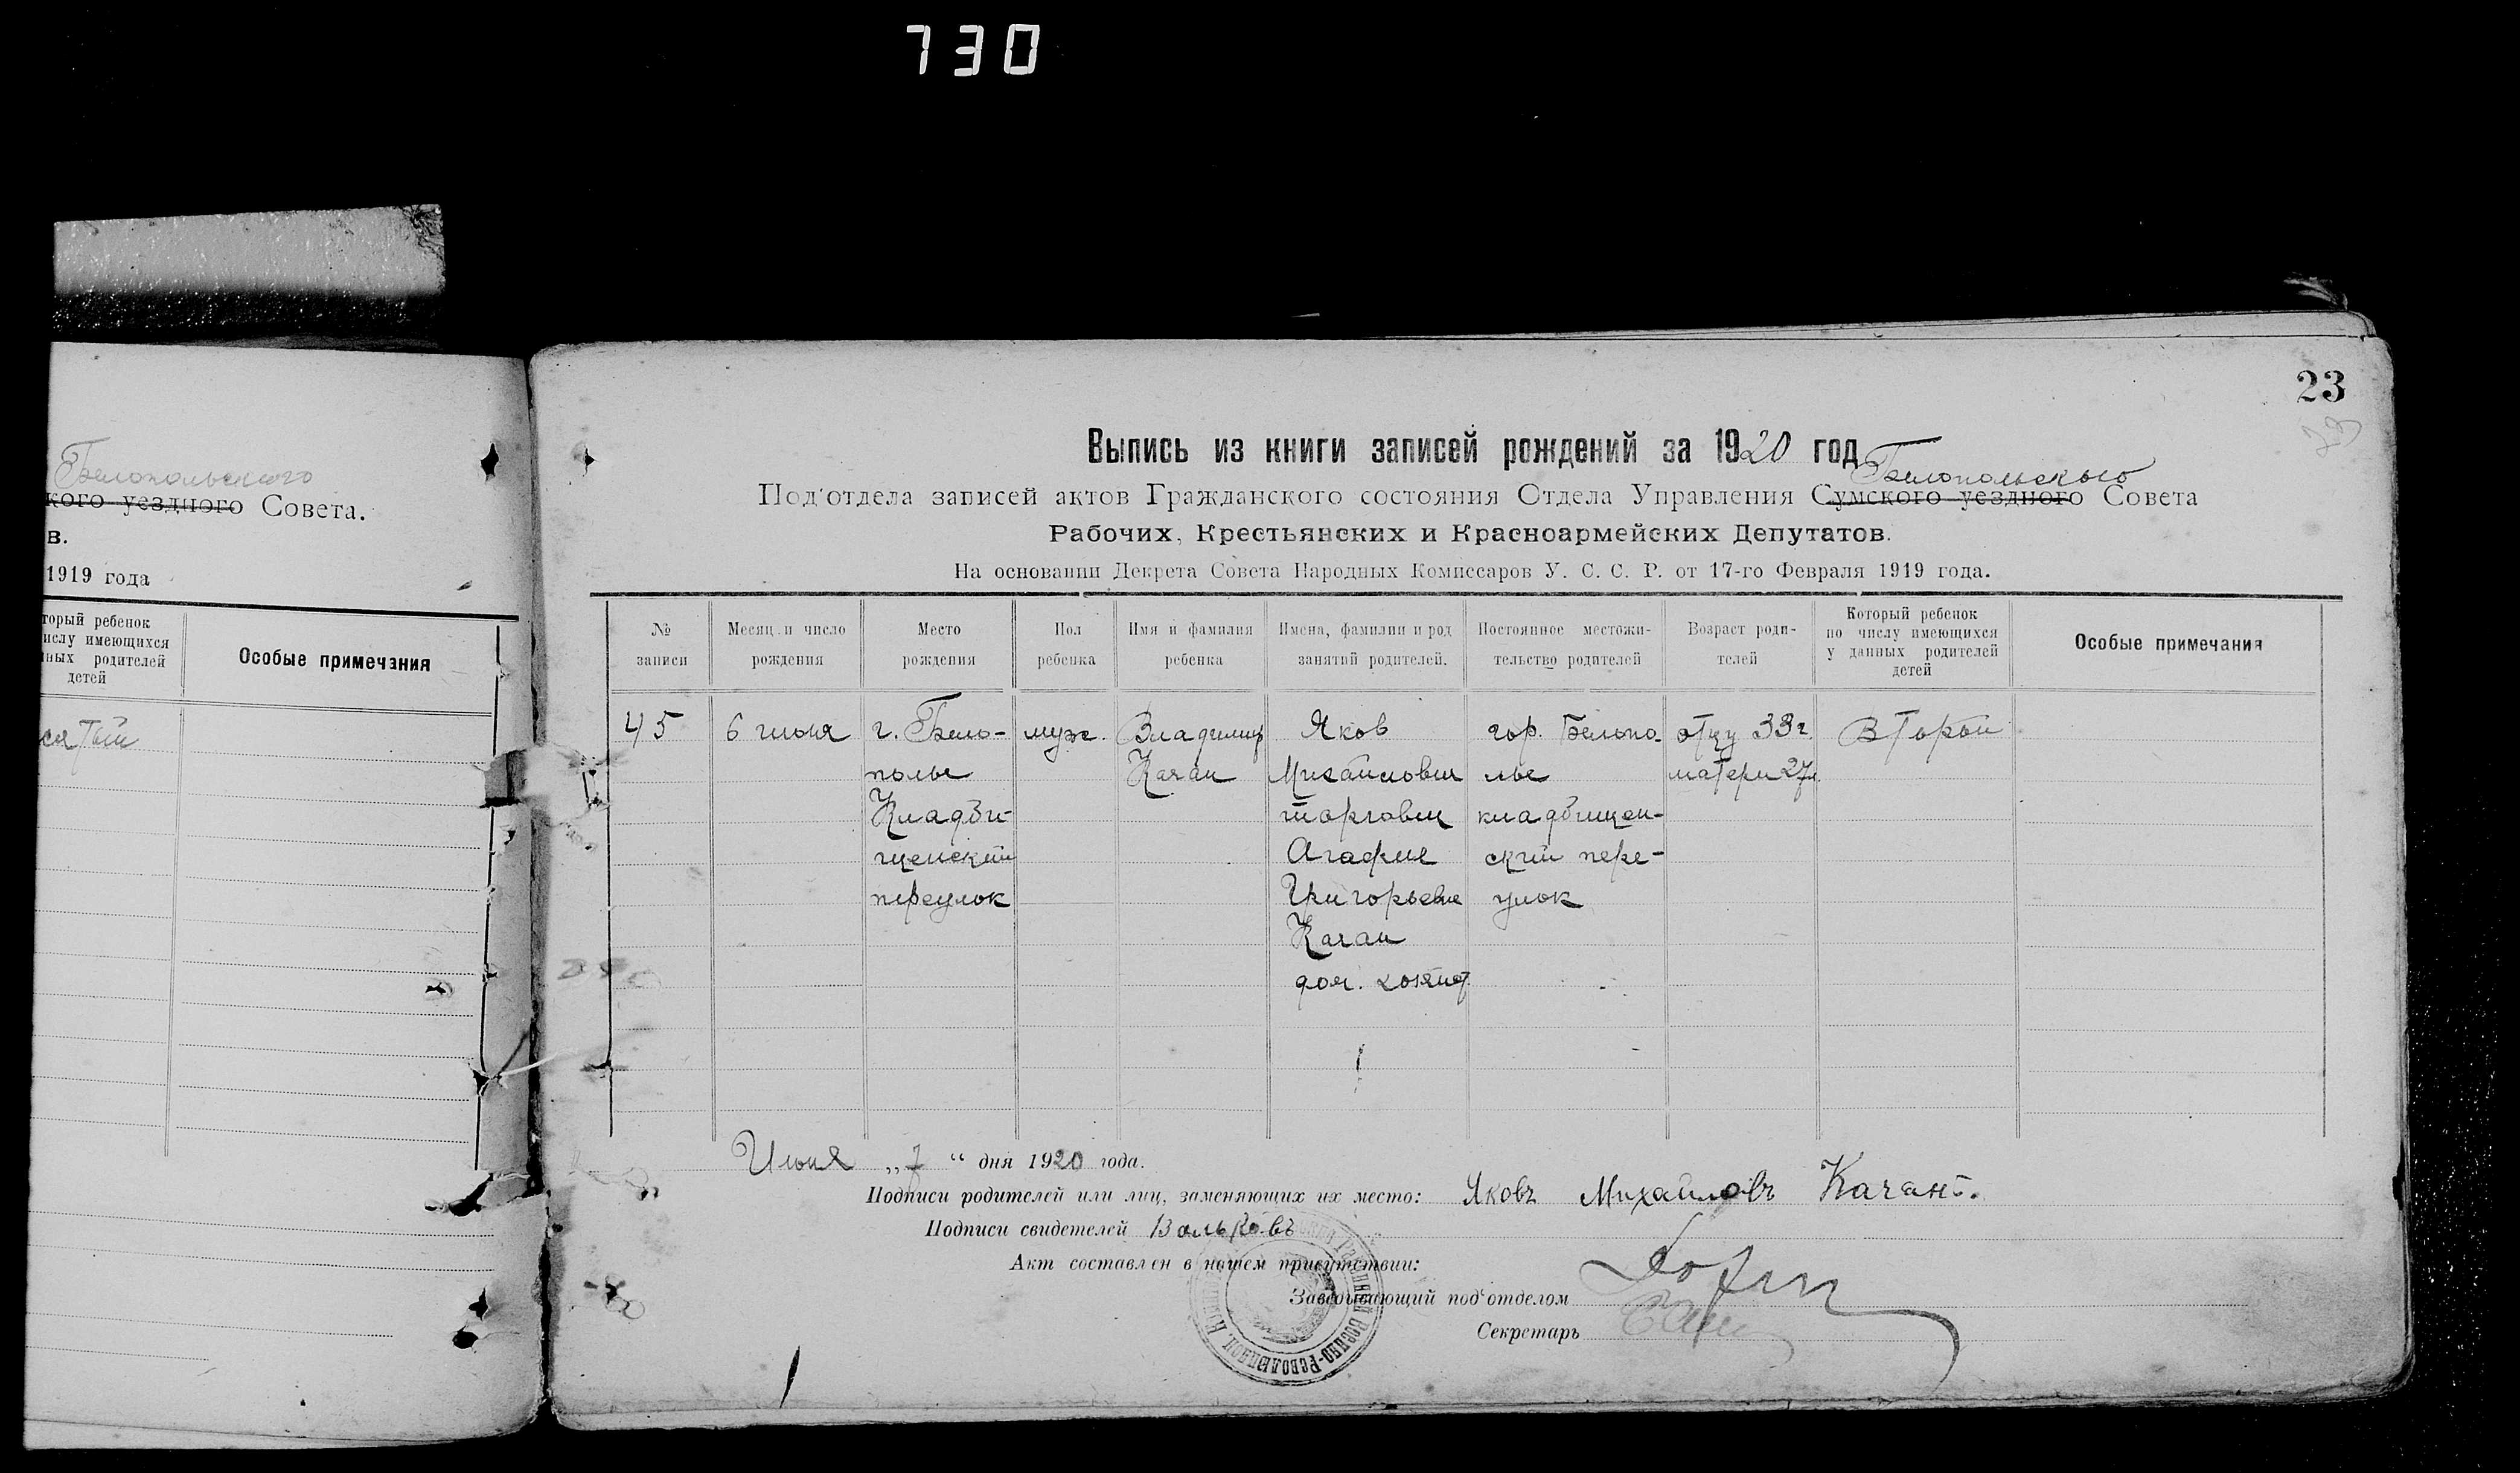 730
Белопольского
кого уездного Совета.
в.
1919 года
торый ребенок
ислу имеющихся
ных родителей
детей
Особые примечания
сятый
23
Выпись из книги записей рождений за 1920 год
Белопольского
Под'отдела записей актов Гражданского состояния Отдела Управления Сумского уездного Совета
Рабочих, Крестьянских и Красноармейских Депутатов.
На основании Декрета Совета Народных Комиссаров У. С. С. Р. от 17-го Февраля 1919 года.
№ записи
Месяц и число рождения
Место рождения
Пол ребенка
Имя и фамилия ребенка
Имена, фамилии и род занятий родителей.
Постоянное местожи-
тельство родителей
Возраст роди-
телей
Который ребенок
по числу имеющихся
у данных родителей
детей
Особые примечания
45
6 июня
г. Бело-
полье
Кладби-
щенский
переулок
муж.
Владимир
Качан
Яков
Михайлович
торговец
Агафия
Григорьевна
Качан
дом. хозяйс.
гор. Белопо-
лье
кладбищен-
ский пере-
улок
отцу 33 г.
матери 27 л.
Второй
Июня „7“ дня 1920 года.
Подписи родителей или лиц, заменяющих их место: Яковъ Михайловъ Качанъ.
Подписи свидетелей Вальковъ
Акт составлен в нашем присутствии:
Заведывающий под'отделом
Секретарь